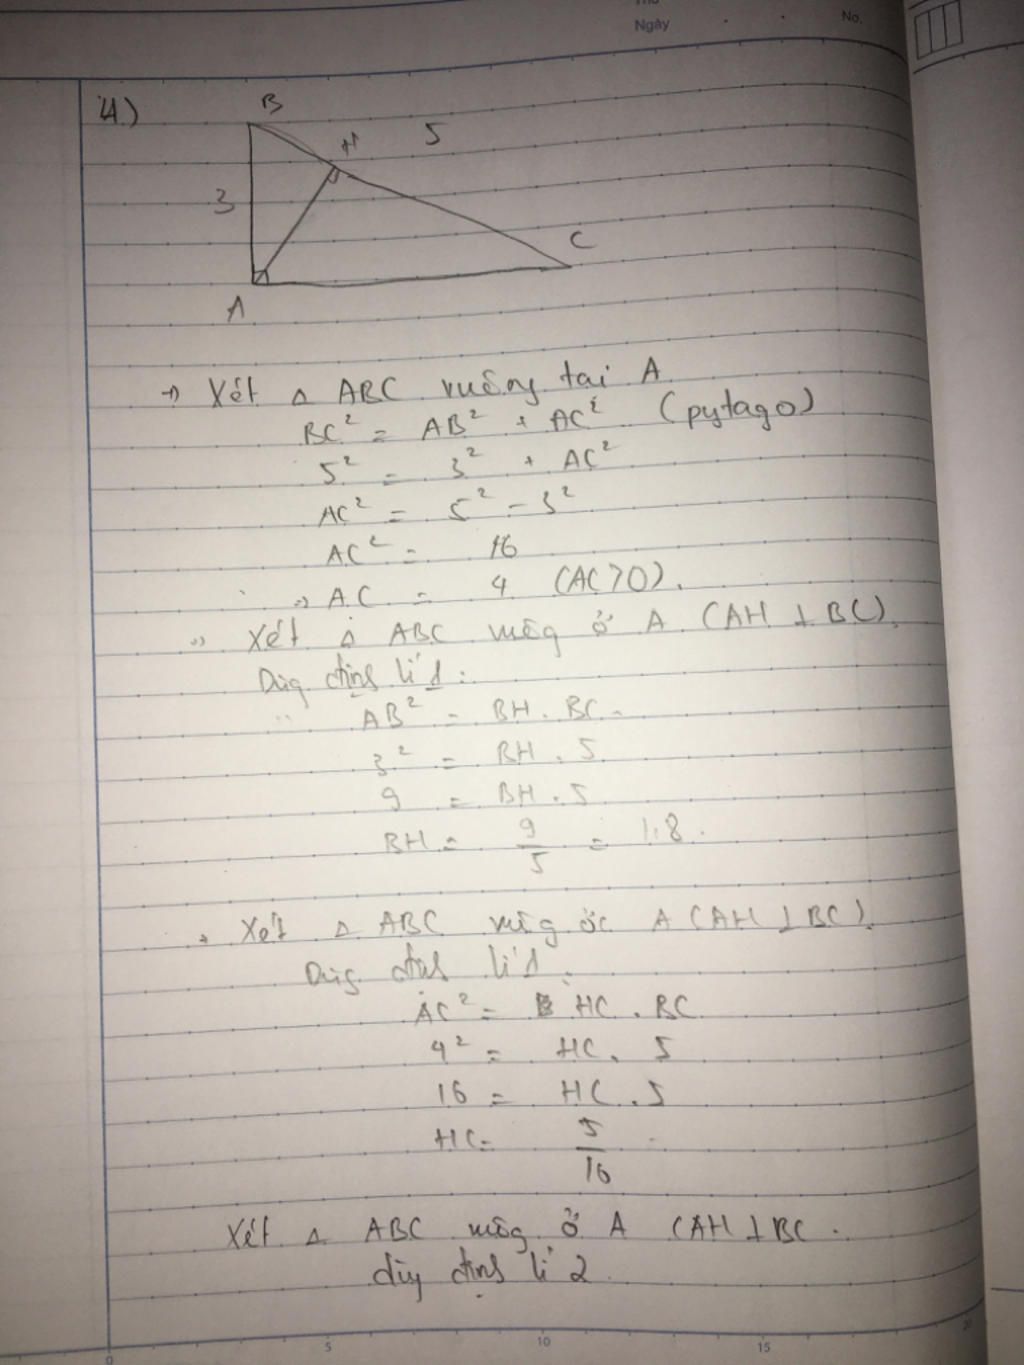 Thứ
Ngày
No.
4)
B
H
5
3
C
A
→ Xét △ ABC vuông tại A
BC² = AB² + AC² (pytago)
5² = 3² + AC²
AC² = 5² - 3²
AC² = 16
→ AC = 4 (AC>0).
Xét △ ABC vuông ở A (AH ⊥ BC).
Dùng định lí 1:
AB² = BH . BC
3² = BH . 5
9 = BH . 5
BH = 9/5 = 1.8.
Xét △ ABC vuông A (AH ⊥ BC).
Dùng định lí 1
AC² = HC . BC
4² = HC . 5
16 = HC . 5
HC = 5/16
Xét △ ABC vuông ở A (AH ⊥ BC.
dùng định lí 2
0 5 10 15 20